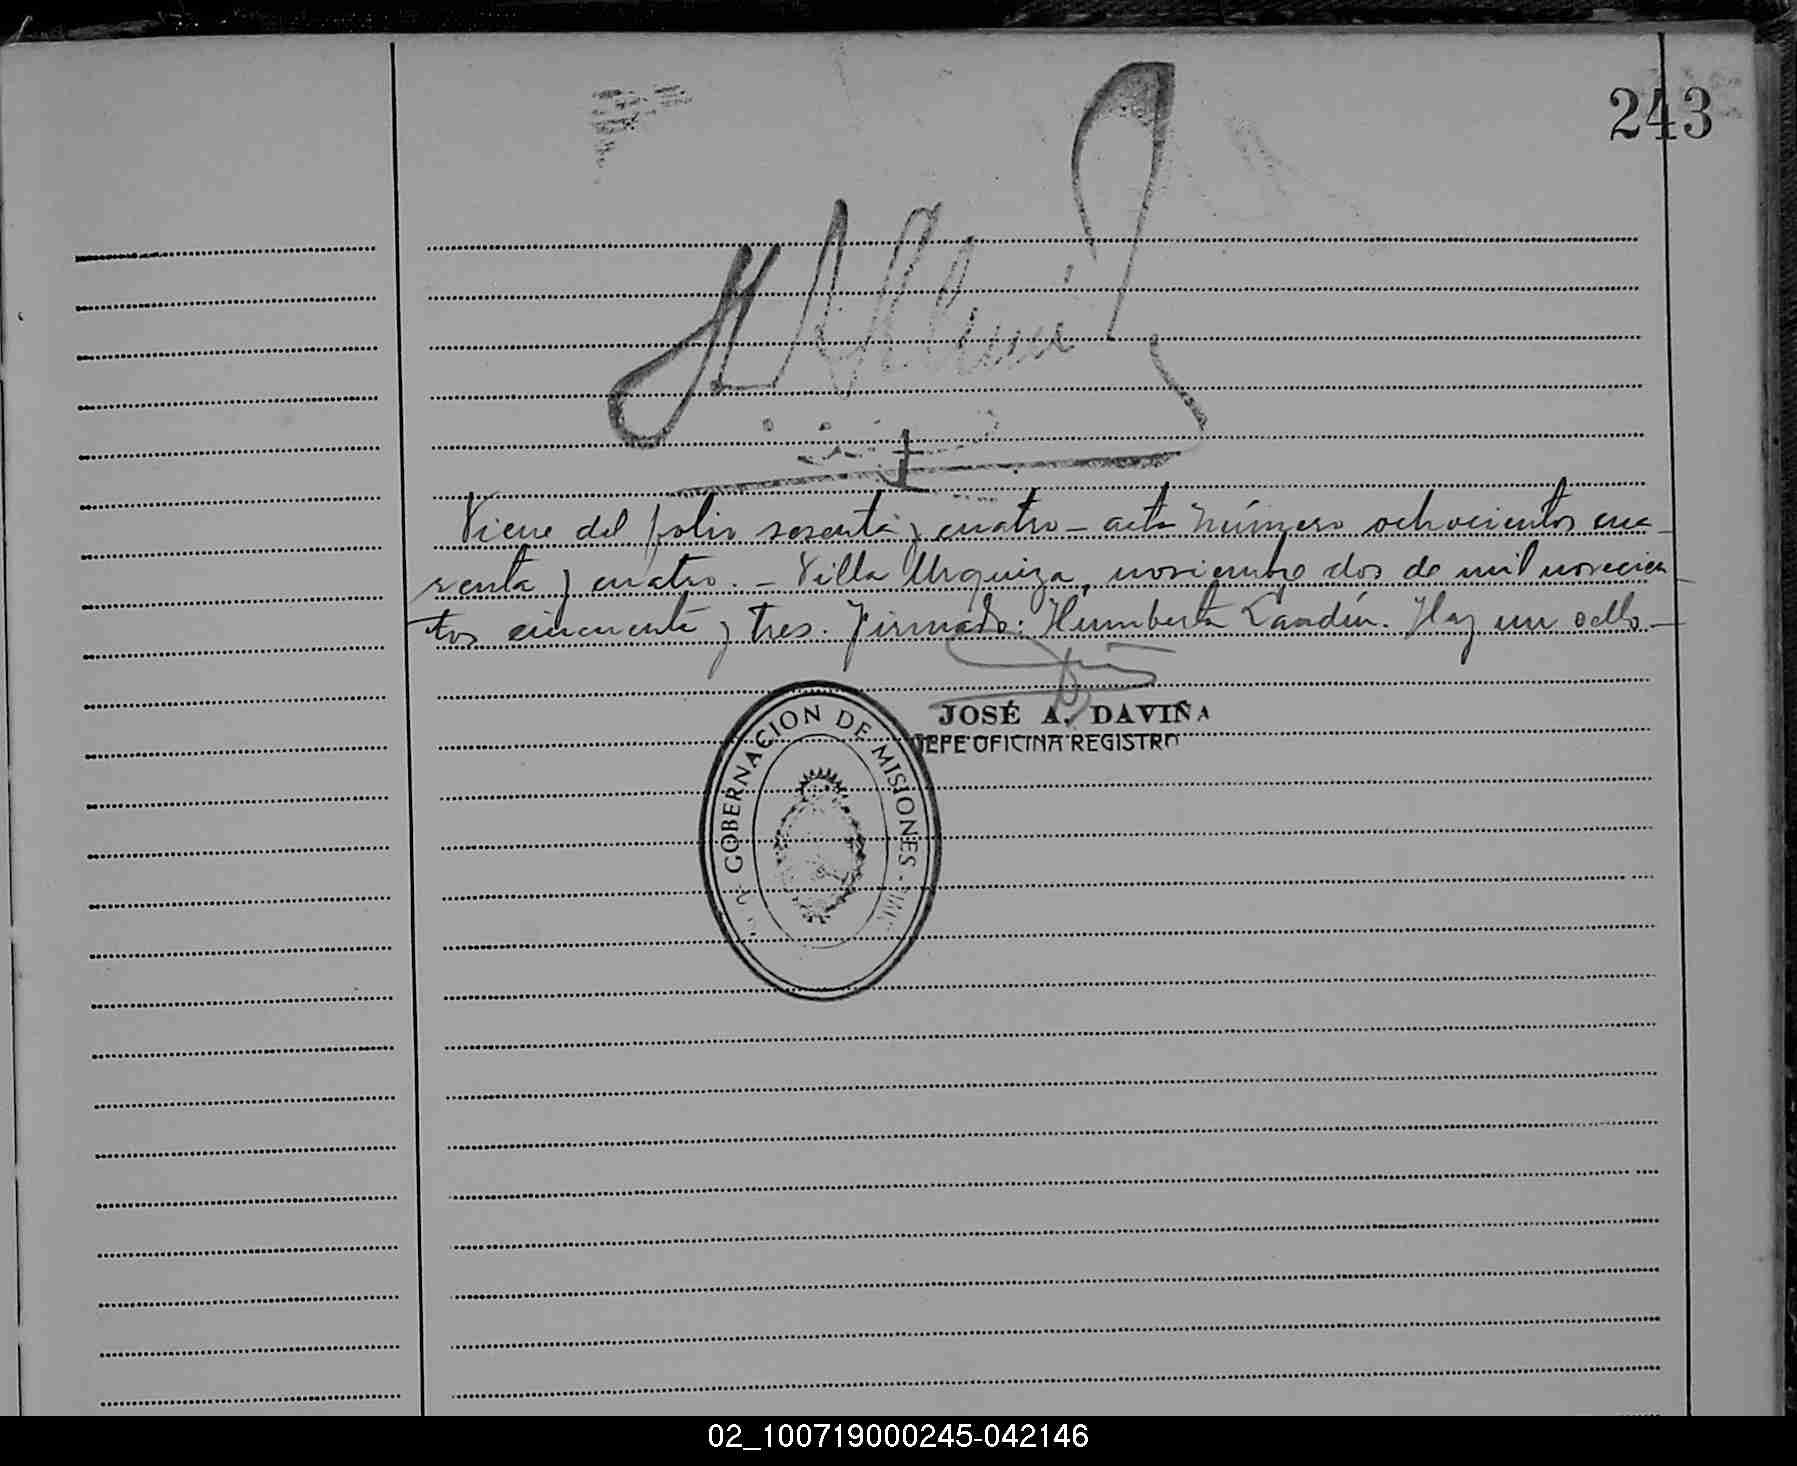 243
Viene del folio sesenta y cuatro - acta número ochocientos cua-
renta y cuatro. - Villa Urquiza, noviembre dos de mil novecien-
tos cincuenta y tres. Firmado: Humberto Landín. Hay un sello.-
JOSÉ A. DAVIÑA
JEFE OFICINA REGISTRO
GOBERNACION DE MISIONES
02_100719000245-042146